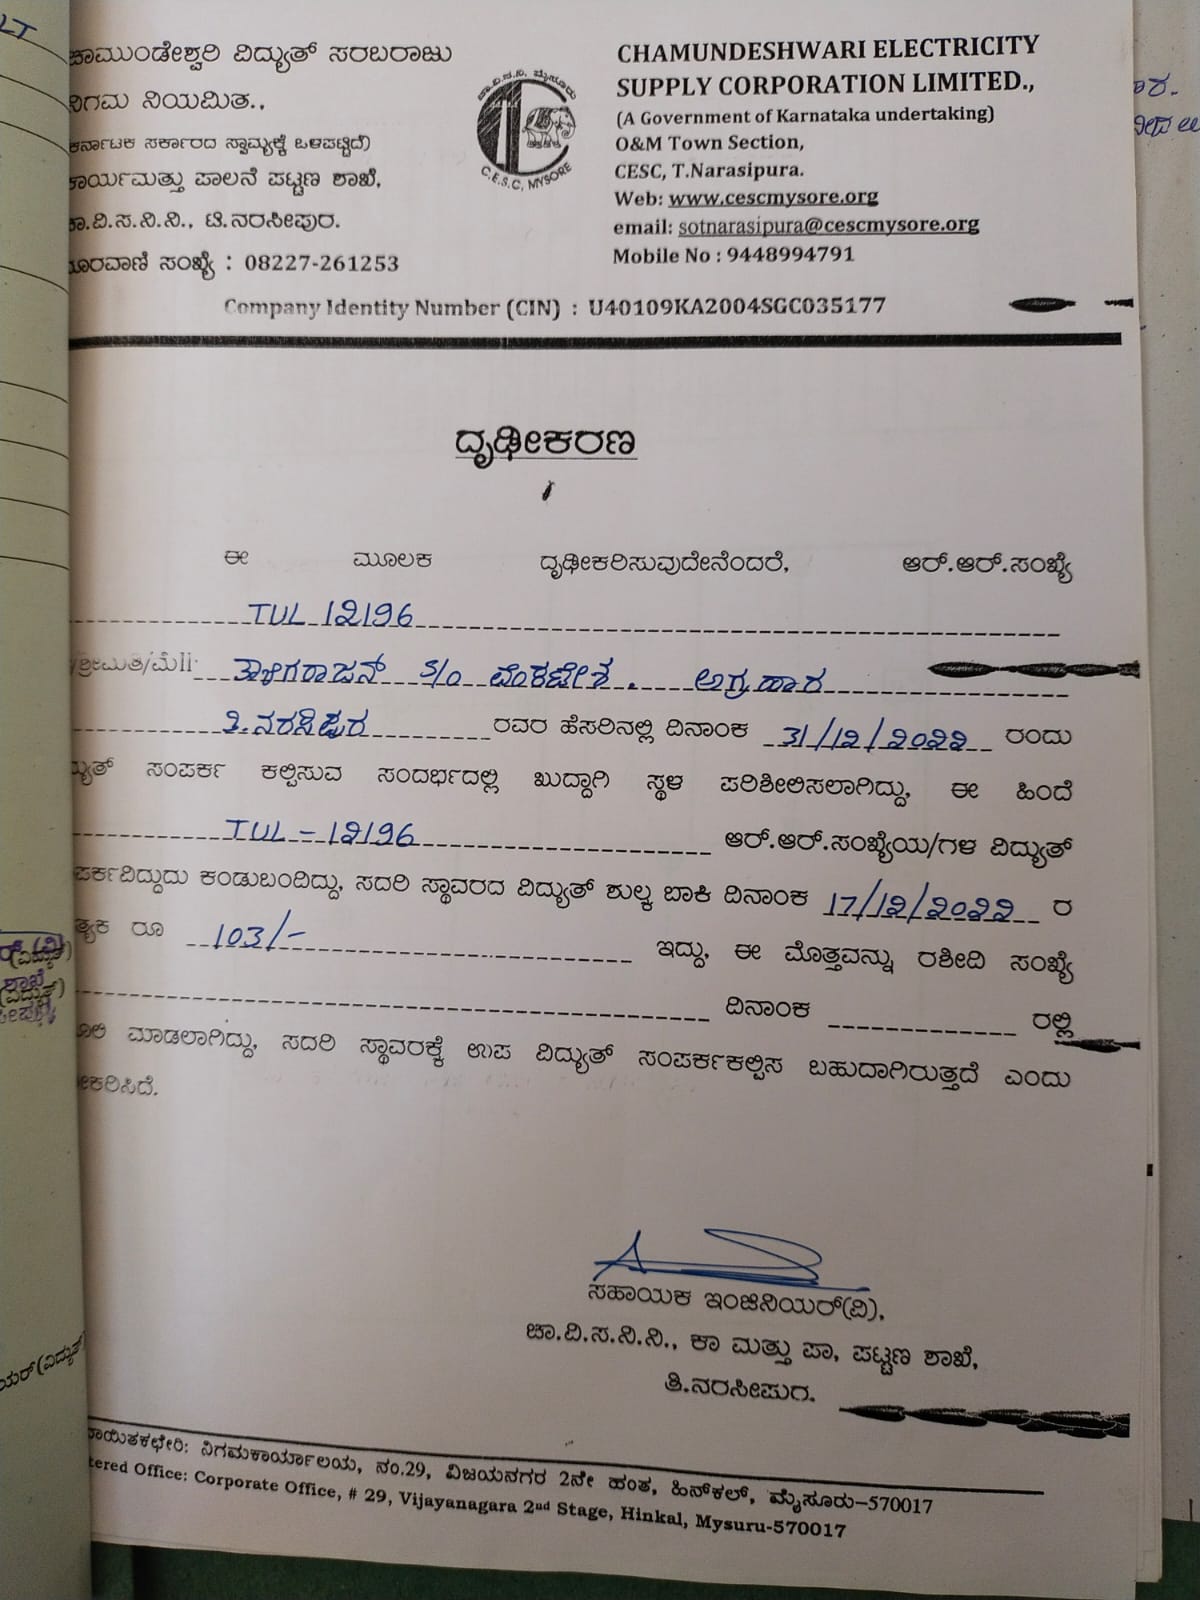 ಚಾಮುಂಡೇಶ್ವರಿ ವಿದ್ಯುತ್ ಸರಬರಾಜು
ನಿಗಮ ನಿಯಮಿತ.,
ಕರ್ನಾಟಕ ಸರ್ಕಾರದ ಸ್ವಾಮ್ಯಕ್ಕೆ ಒಳಪಟ್ಟಿದೆ)
ಕಾರ್ಯಮತ್ತು ಪಾಲನೆ ಪಟ್ಟಣ ಶಾಖೆ,
ಚಾ.ವಿ.ಸ.ನಿ.ನಿ., ಟಿ.ನರಸೀಪುರ.
ದೂರವಾಣಿ ಸಂಖ್ಯೆ : 08227-261253
ಚಾ.ವಿ.ಸ.ನಿ. ಮೈಸೂರು
C.E.S.C, MYSORE
CHAMUNDESHWARI ELECTRICITY
SUPPLY CORPORATION LIMITED.,
(A Government of Karnataka undertaking)
O&M Town Section,
CESC, T.Narasipura.
Web: www.cescmysore.org
email: sotnarasipura@cescmysore.org
Mobile No : 9448994791
Company Identity Number (CIN) : U40109KA2004SGC035177
ದೃಢೀಕರಣ
ಈ ಮೂಲಕ ದೃಢೀಕರಿಸುವುದೇನೆಂದರೆ, ಆರ್.ಆರ್.ಸಂಖ್ಯೆ
TUL 12196
/ಶ್ರೀಮತಿ/ಮೆ॥ S/o ವೆಂಕಟೇಶ. ಅಗ್ರಹಾರ
ತಿ.ನರಸೀಪುರ ರವರ ಹೆಸರಿನಲ್ಲಿ ದಿನಾಂಕ 31/12/2022 ರಂದು
ದ್ಯುತ್ ಸಂಪರ್ಕ ಕಲ್ಪಿಸುವ ಸಂದರ್ಭದಲ್ಲಿ ಖುದ್ದಾಗಿ ಸ್ಥಳ ಪರಿಶೀಲಿಸಲಾಗಿದ್ದು, ಈ ಹಿಂದೆ
TUL-12196 ಆರ್.ಆರ್.ಸಂಖ್ಯೆಯ/ಗಳ ವಿದ್ಯುತ್
ಪರ್ಕವಿದ್ದುದು ಕಂಡುಬಂದಿದ್ದು, ಸದರಿ ಸ್ಥಾವರದ ವಿದ್ಯುತ್ ಶುಲ್ಕ ಬಾಕಿ ದಿನಾಂಕ 17/12/2022 ರ
ತ್ಯಕ ರೂ 103/- ಇದ್ದು, ಈ ಮೊತ್ತವನ್ನು ರಶೀದಿ ಸಂಖ್ಯೆ
ದಿನಾಂಕ ರಲ್ಲಿ
ೂಲಿ ಮಾಡಲಾಗಿದ್ದು, ಸದರಿ ಸ್ಥಾವರಕ್ಕೆ ಉಪ ವಿದ್ಯುತ್ ಸಂಪರ್ಕಕಲ್ಪಿಸ ಬಹುದಾಗಿರುತ್ತದೆ ಎಂದು
ೀಕರಿಸಿದೆ.
ಸಹಾಯಕ ಇಂಜಿನಿಯರ್(ವಿ),
ಚಾ.ವಿ.ಸ.ನಿ.ನಿ., ಕಾ ಮತ್ತು ಪಾ, ಪಟ್ಟಣ ಶಾಖೆ,
ತಿ.ನರಸೀಪುರ.
ದಾಯಿತಕಛೇರಿ: ನಿಗಮಕಾರ್ಯಾಲಯ, ನಂ.29, ವಿಜಯನಗರ 2ನೇ ಹಂತ, ಹಿನ್‌ಕಲ್, ಮೈಸೂರು-570017
tered Office: Corporate Office, # 29, Vijayanagara 2nd Stage, Hinkal, Mysuru-570017